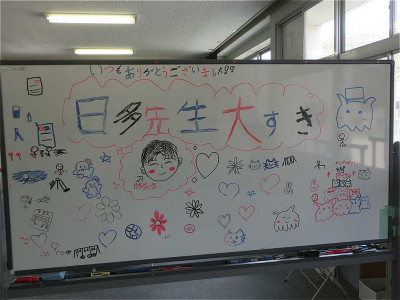 いつもありがとうございました
日多先生大すき